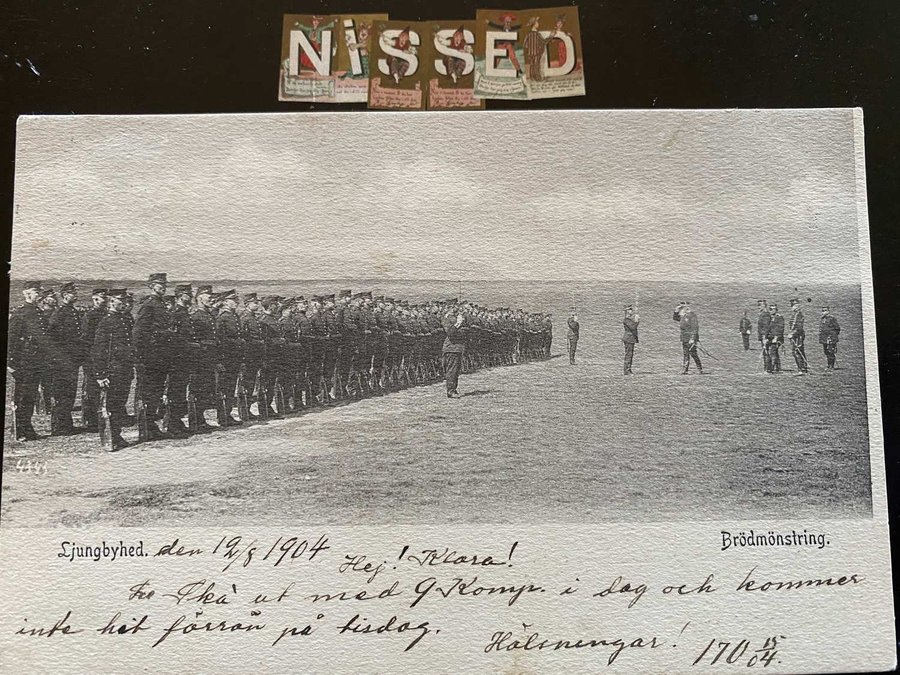 NiSSED
4343
Ljungbyhed. den 12/8 1904 Brödmönstring.
Hej! Klara!
Skå ut med 9 Komp. i dag och kommer
inte hit förrän på tisdag.
Hälsningar! 170 15/04.